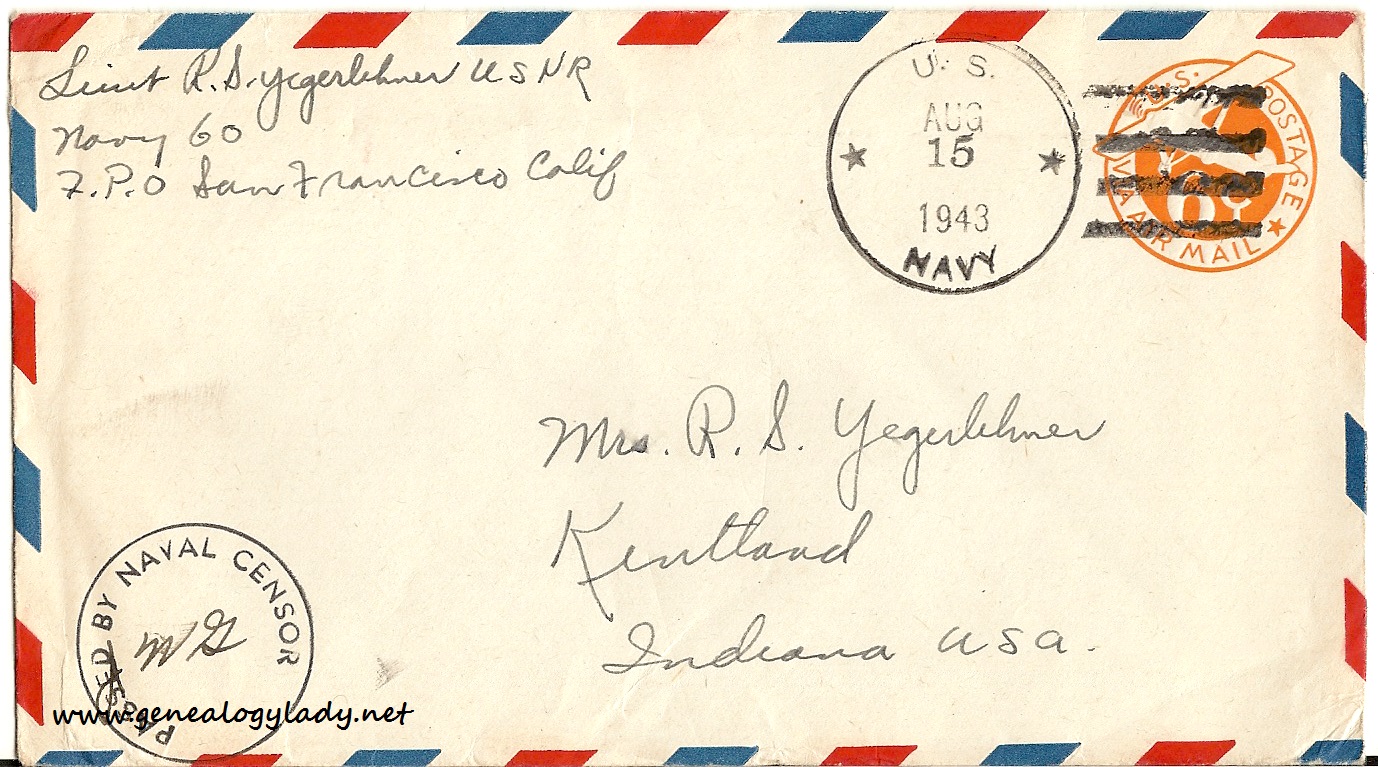 Lieut R. S. Yegerlehner USNR
Navy 60
F.P.O San Francisco Calif
U. S.
AUG
15
1943
NAVY
U.S. POSTAGE
6¢
VIA AIR MAIL
Mrs. R. S. Yegerlehner
Kentland
Indiana USA.
PASSED BY NAVAL CENSOR
WG
www.genealogylady.net